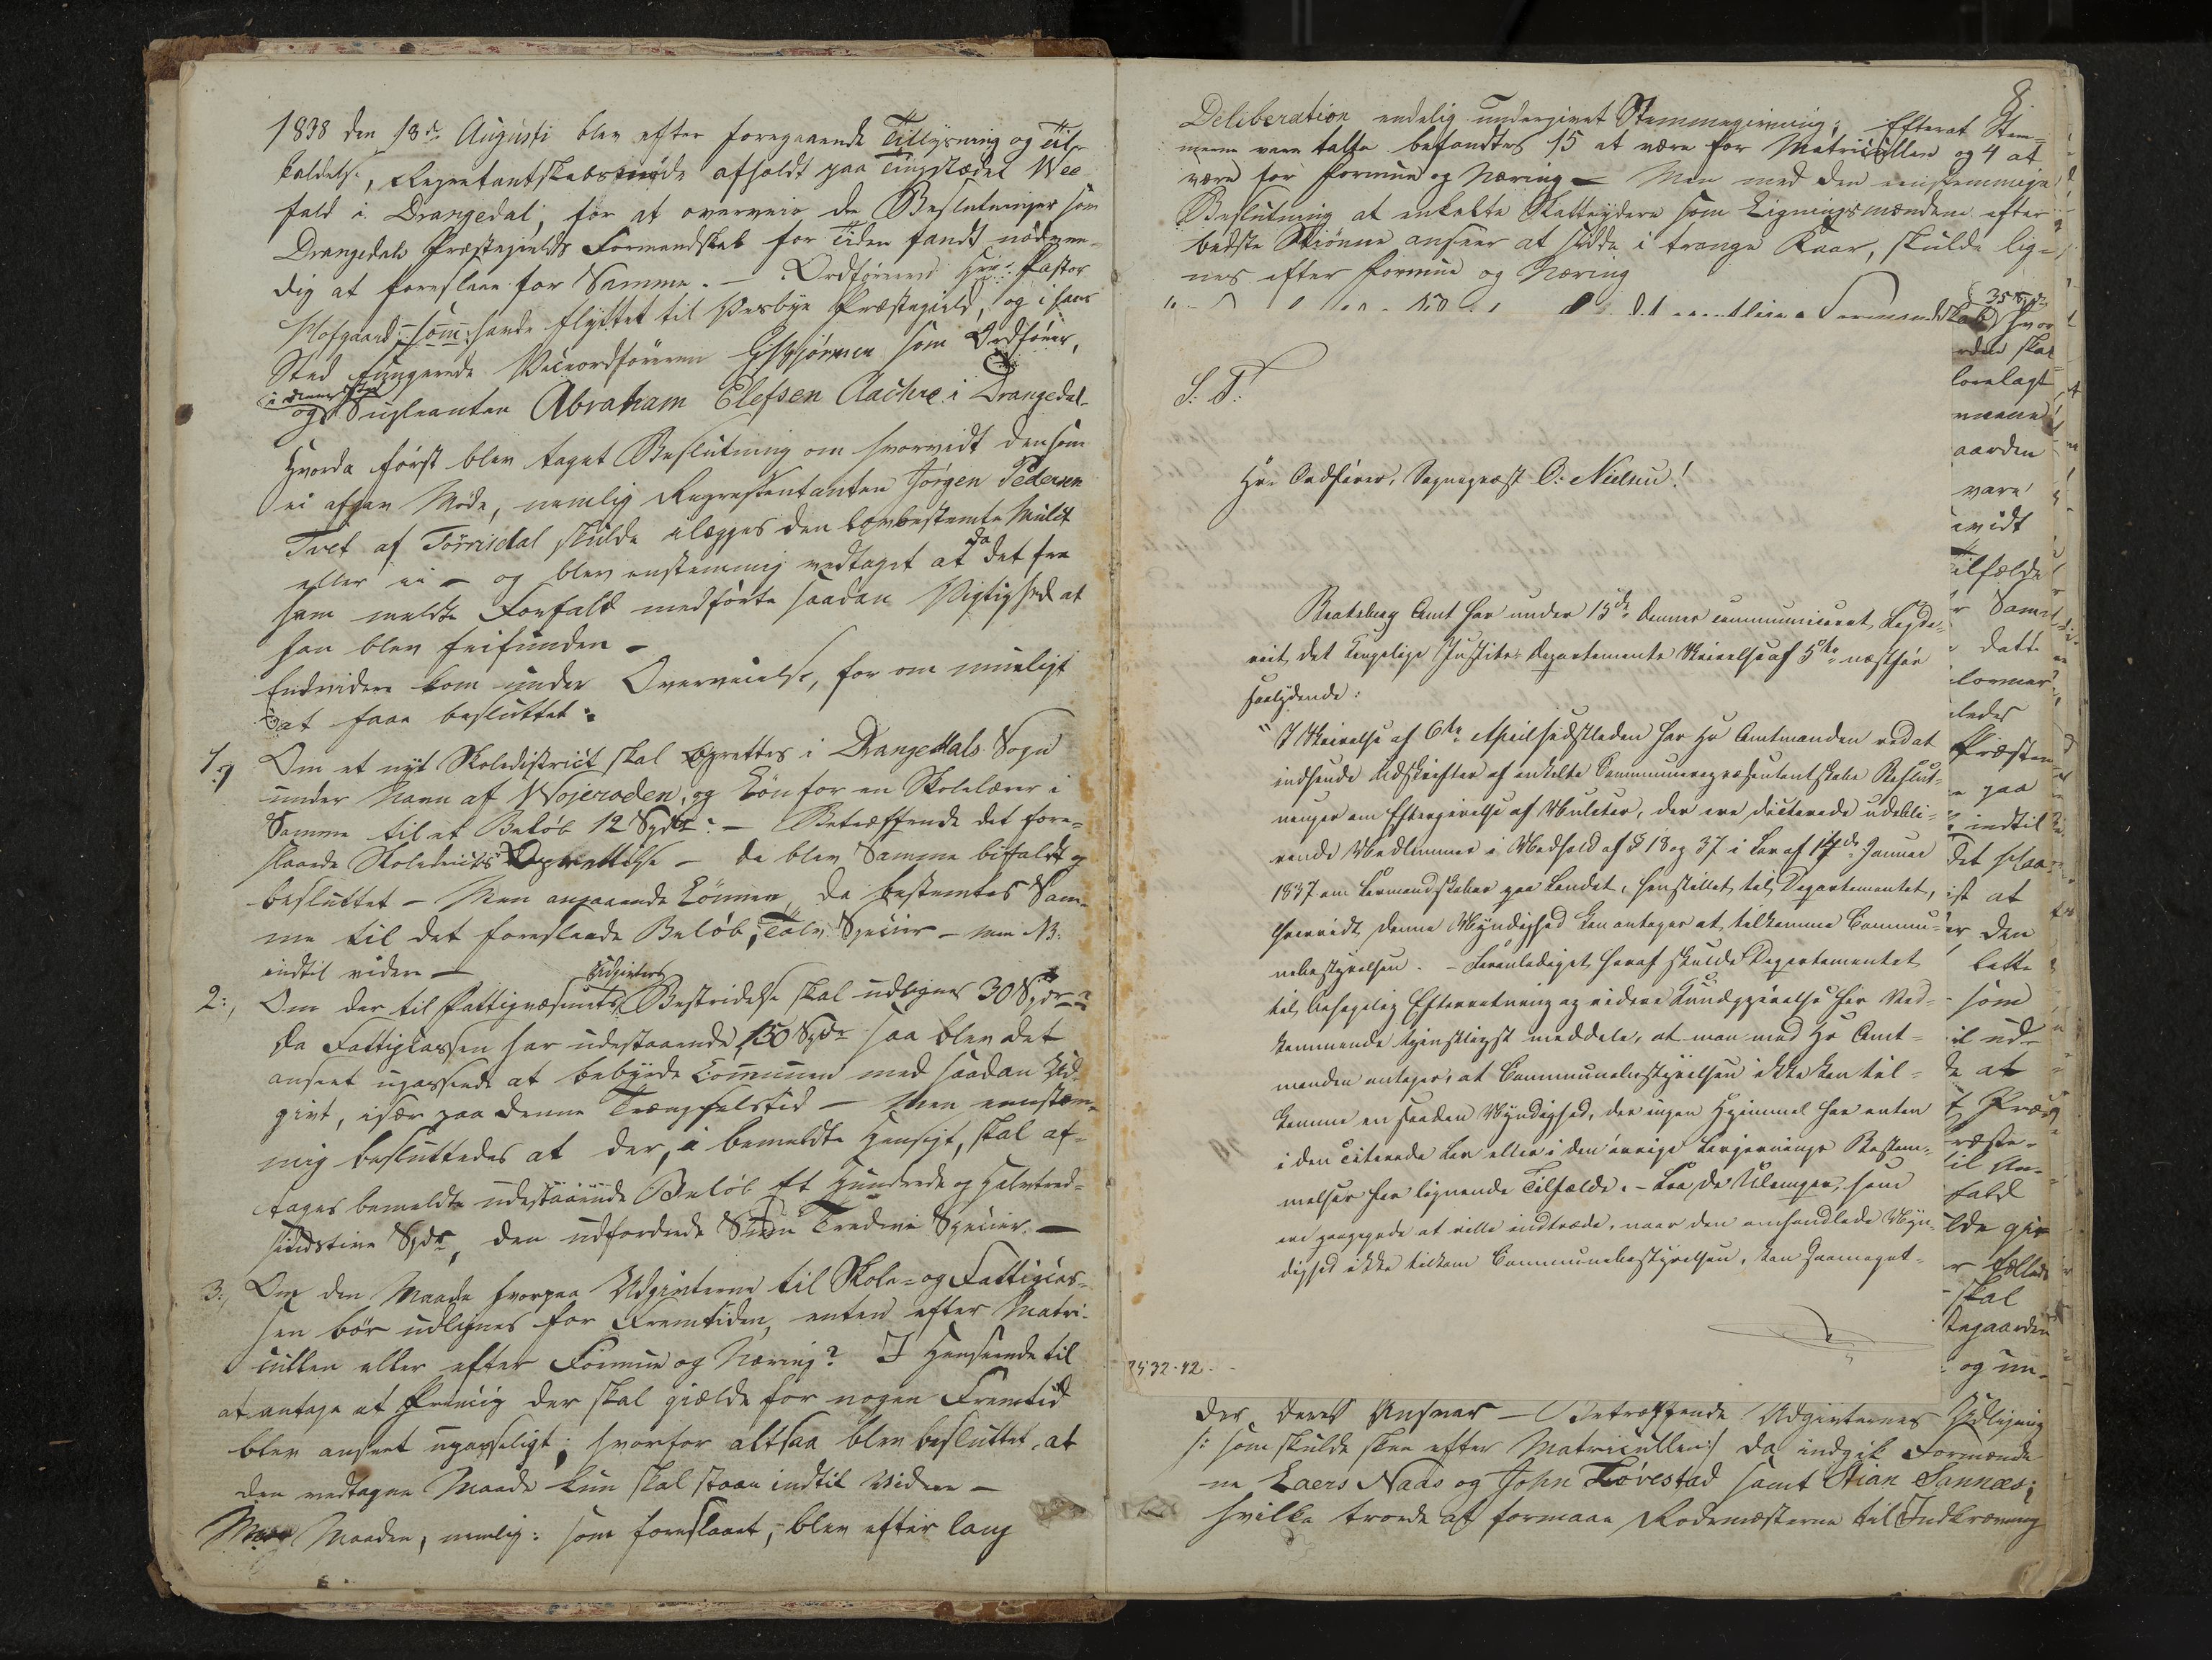 1838 den 18de Augusti blev efter foregaaende Tillysning og Til-
kaldelse, Repræsentantskabsmøde afholdt paa Tingstædet Wee
fald i Drangedal, for at overveie de Beslutninger som
Drangedals Præstegields Formandskab for Tiden fandt nødven-
dig at foreslaae for Samme. - Ordføreren Hrr. Pastor
Hofgaard, som havde flyttet til Præstegield, og i hans
Sted fungerede Viceordføreren Esbjørnsen som Ordfører,
i dennes Sted
og Supleanten Abraham Elefsen Aachre i Drangedal.
Hvorda først blev taget Beslutning om hvorvidt den som
ei afgav Møde, nemlig Repræsentanten Jørgen Pedersen
Tvet af Tørrisdal skulde ilægges den lovbestemte Mulct
eller ei - og blev enstemmig vedtaget at da det fra
ham meldte Forfald medførte saadan Vigtighed at
han blev frifunden -
Endvidere kom under Overveielse, for om mueligt
at faae besluttet:
1, Om et nyt Skoledistrict skal oprettes i Drangedals Sogn
under Navn af Wojeroden, og Løn for en Skolelærer i
Samme til et Beløb 12 Spdlr? - Betræffende det fore-
slaaede Skoledistricts Oprettelse - da blev Samme bifaldt og
besluttet - Men angaaende Lønnen, da bestemtes Sam-
me til det foreslaaede Beløb, Tolv Specier - men NB.
indtil videre -
2:, Om der til Fattigvæsenets Udgivters Bestridelse skal udlignes 30 Spdr?
Da Fattigcassen har udestaaende 150 Spdr saa blev det
anseet upassende at bebyrde Communen med saadan Ud-
givt, især paa denne Trængselstid - Men eenstem-
mig besluttedes at der, i bemeldte Hensigt, skal af-
tages bemeldte udestaaende Beløb Et Hundrede og Halvtred-
sindstive Spdr, den udfordrede Sum Tredive Specier. -
3:, Om den Maade hvorpaa Udgivterne til Skole- og Fattigcas-
sen bør udlignes for Fremtiden, enten efter Matri-
cullen eller efter Formue og Næring? I Henseende til
at antage et Princip der skal gielde for nogen Fremtid
blev anseet upasseligt; hvorfor altsaa blev besluttet, at
den vedtagne Maade kun skal staae indtil Videre -
Maaden, nemlig: som foreslaaet, - blev efter lang
8.
Deliberation endelig undergivet Stemmegivning; Efterat Stem-
merne vare talte befandtes 15 at være for Matricullen og 4 at
være for Formue og Næring - Men med den eenstemmige
Beslutning at enkelte Skatteydere som Ligningsmændene efter
bedste Skiønne anseer at sidde i trange Kaar, skulde lig-
nes efter Formue og Næring
35 Spdr
S. T.
Hr. Ordfører, Sogneprest O: Nielsen!
Bratsberg Amt har under 15de dennes communiceret Segde-
viit det Kongelige Justits-Departements Skrivelse af 5te næstfør
saalydende:
"I Skrivelse af 6te April sidstleden har Hr Amtmanden ved at
indsende Udskrifter af enkelte Communerepræsentantskabs Beslut-
ninger om Eftergivelse af Mulcter, der ere dicterede udebli-
vende Medlemmer i Medhold af § 18 og 37 i Lov af 14de Januar
1837 om Formandskaber paa Landet, henstillet til Departementet,
hvorvidt denne Myndighed kan antages at tilkomme Commu-
nebestyrelsen. - Foranlediget heraf skulde Departementet
til behagelig Efterretning og videre Kundgjørelse for Ved-
kommende tjenstligst meddele, at man med Hr Amt-
manden antager, at Communebestyrelsen ikke kan til-
komme en saadan Myndighed, der ingen Hjemmel har enten
i den citerede Lov eller i den øvrige Lovgivnings Bestem-
melser for lignende Tilfælde. - De Ulemper, som
ere paapegede at ville indtræde, naar den omhandlede Myn-
dighed ikke tilkom Communebestyrelsen, kan saameget-
7532-42.
der deres Ansvar - Betræffende Udgivternes Udligning
/: som skulde skee efter Matricullen :/ da indgik Formænde-
ne Laers Naas og John Tøvestad samt Stian Sannæs;
hvilke troede at formaae Rodemesterne til Indkrævning